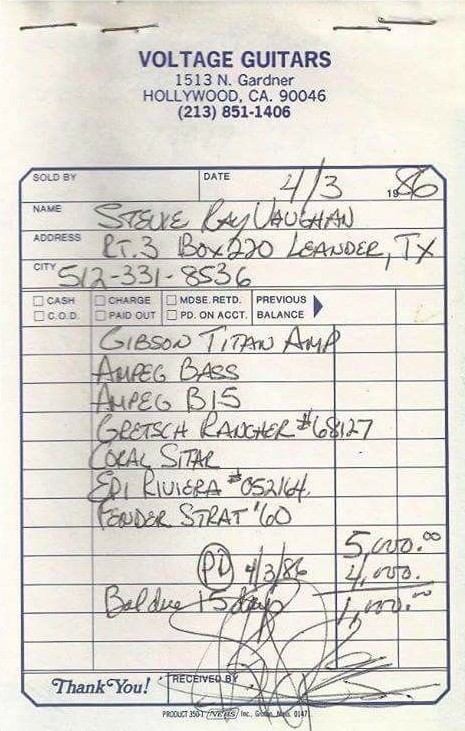 VOLTAGE GUITARS
1513 N. Gardner
HOLLYWOOD, CA. 90046
(213) 851-1406
SOLD BY DATE 4/3 1986
NAME STEVIE RAY VAUGHAN
ADDRESS RT. 3 BOX 220 LEANDER, TX
CITY 512-331-8536
CASH CHARGE MDSE. RETD. PREVIOUS
C.O.D. PAID OUT PD. ON ACCT. BALANCE
GIBSON TITAN AMP
AMPEG BASS
AMPEG B15
GRETSCH RANCHER #68127
CORAL SITAR
EPI RIVIERA #052164.
FENDER STRAT '60
5,000.00
PD 4/3/86 4,000.
Bal due 15 days 1,000.00
Thank You! RECEIVED BY
PRODUCT 350-1 NEBS Inc., Groton, Mass. 01471